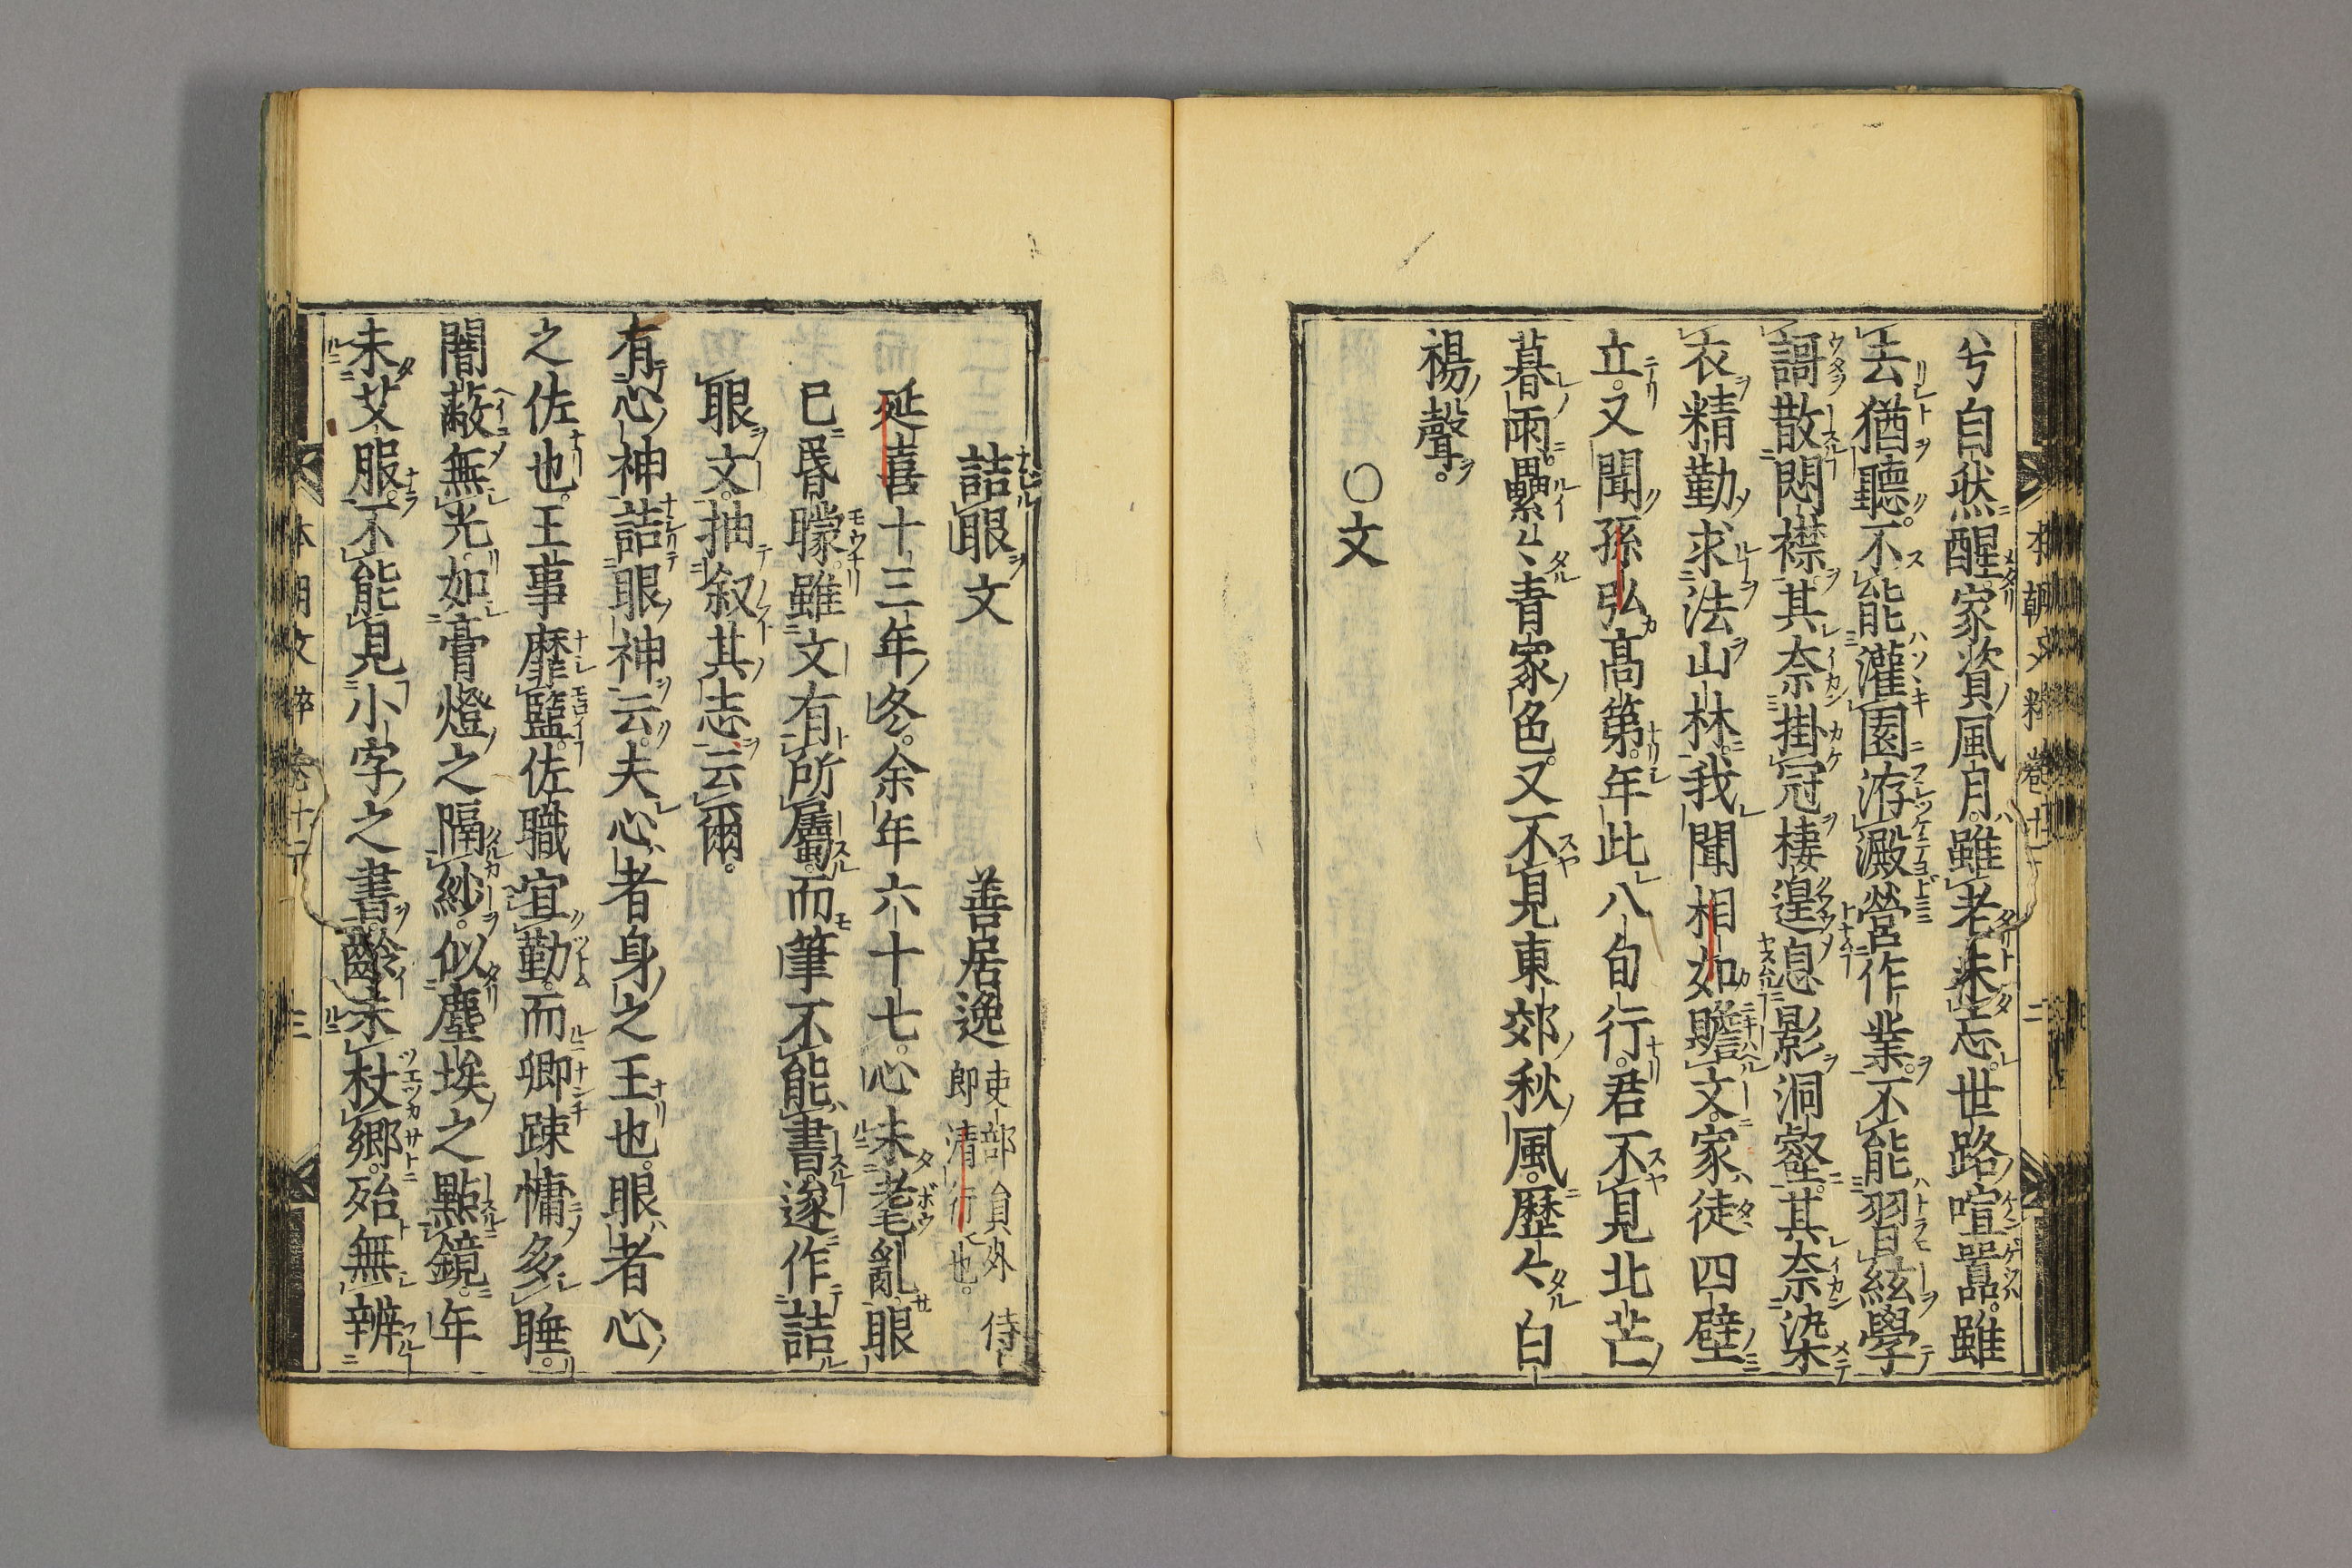 兮自然醒家資風月雖老未忘世路喧囂雖
去猶聽不能灌園游澱營作業不能習絃學
謌散悶襟其奈掛冠棲遑息影洞壑其奈染
衣精勤求法山林我聞相如贍文家徒四壁
立又聞孫弘高第年此八旬行君不見北芒
暮雨纍〻青家色又不見東郊秋風歷〻白
楊聲。
○文
詰眼文 善居逸 吏部員外侍郎清行也。
延喜十三年冬。余年六十七。心未耄亂眼
已昏矇雖文有所屬而筆不能書遂作詰
眼文抽叙其志云爾。
有心神詰眼神云夫心者身之王也眼者心
之佐也。王事靡盬。佐職宜勤而卿踈慵多睡。
闇蔽無光如膏燈之隔紗。似塵埃之點鏡。年
未艾服。不能見小字之書。齡未杖鄉。殆無辨
本朝文粹卷十二 三